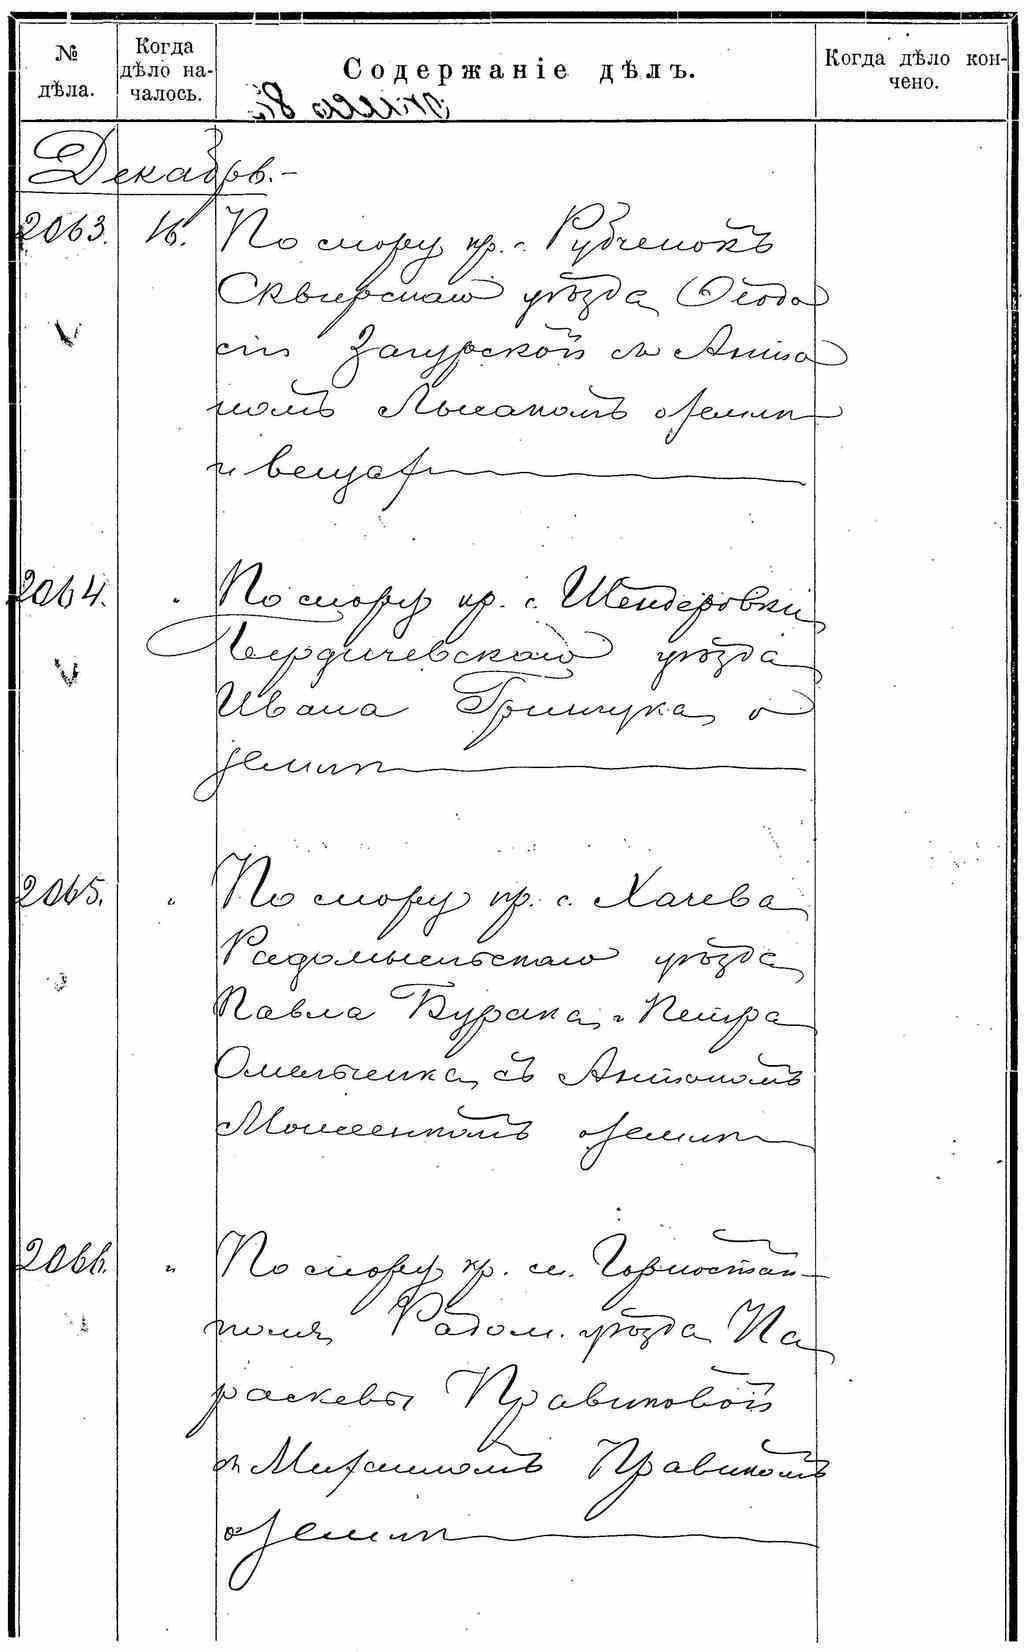 № дѣла.
Когда дѣло началось.
Содержаніе дѣлъ.
Когда дѣло кончено.
Декабрь.-
2063. 16. По спору кр. с. Рубченокъ
Сквирскаго уѣзда Ѳеодо
сіи Загурской съ Анто
номъ Лысакомъ о земли
и вещах
2064. " По спору кр. с. Шендеровки
Бердичевскаго уѣзда
Ивана Гринчука о
земли
2065. " По спору кр. с. Хачева
Радомысльскаго уѣзда
Павла Бурака и Петра
Омельченка съ Антономъ
Моисеенкомъ о земли
2066. " По спору кр. м. Горностай-
поля Радом. уѣзда Па
раскевы Правиковой
съ Михаиломъ Правикомъ
о земли